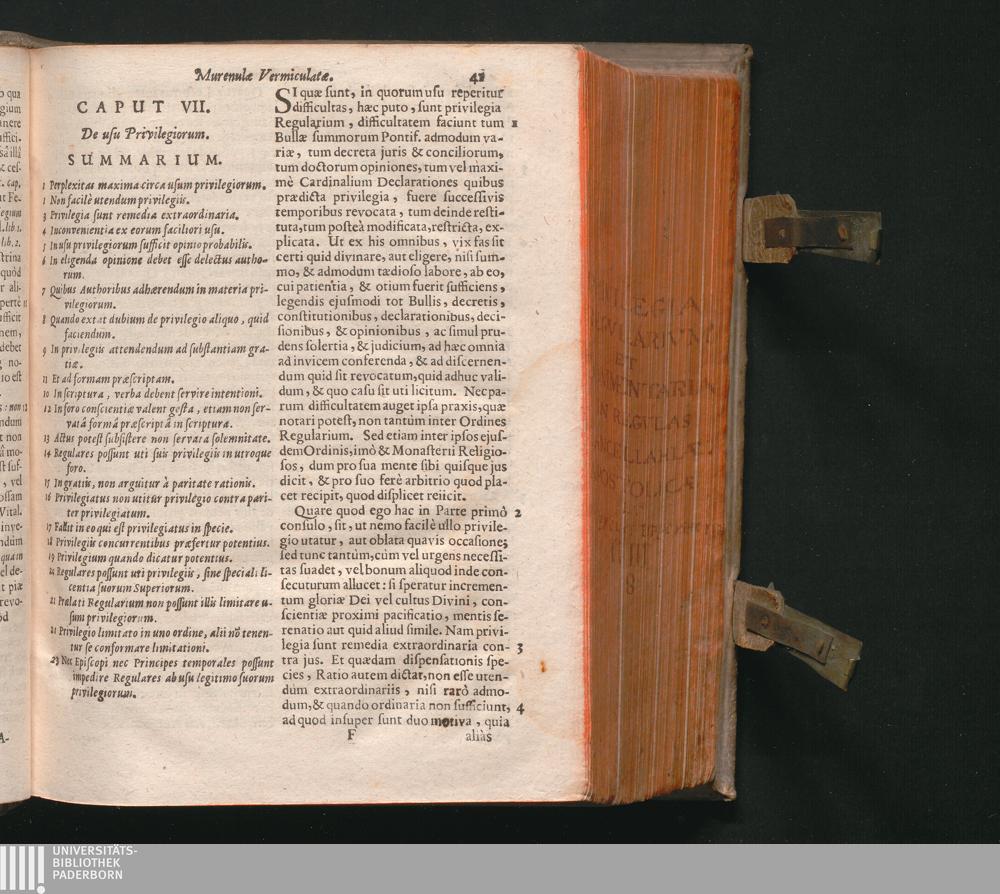 Murenulæ Vermiculatæ. 41
CAPUT VII.
De usu Privilegiorum.
SUMMARIUM.
1 Perplexitas maxima circa usum privilegiorum.
2 Non facilè utendum privilegiis.
3 Privilegia sunt remedia extraordinaria.
4 Inconvenientia ex eorum faciliori usu.
5 In usu privilegiorum sufficit opinio probabilis.
6 In eligenda opinione debet esse delectus autho-
rum.
7 Quibus Authoribus adhærendum in materia pri-
vilegiorum.
8 Quando extat dubium de privilegio aliquo, quid
faciendum.
9 In privilegiis attendendum ad substantiam gra-
tiæ.
11 Et ad formam præscriptam.
10 In scriptura, verba debent servire intentioni.
12 In foro conscientiæ valent gesta, etiam non ser-
vatâ formâ præscriptâ in scriptura.
13 Actus potest subsistere non servata solemnitate.
14 Regulares possunt uti suis privilegiis in utroque
foro.
15 In gratiis, non arguitur à paritate rationis.
16 Privilegiatus non utitur privilegio contra pari-
ter privilegiatum.
17 Fallit in eo qui est privilegiatus in specie.
18 Privilegiis concurrentibus præfertur potentius.
19 Privilegium quando dicatur potentius.
20 Regulares possunt uti privilegiis, sine speciali li-
centia suorum Superiorum.
21 Prælati Regularium non possunt illis limitare u-
sum privilegiorum.
22 Privilegio limitato in uno ordine, alii nō tenen-
tur se conformare limitationi.
23 Nec Episcopi nec Principes temporales possunt
impedire Regulares ab usu legitimo suorum
privilegiorum.
SI quæ sunt, in quorum usu reperitur
difficultas, hæc puto, sunt privilegia
Regularium, difficultatem faciunt tum 1
Bullæ summorum Pontif. admodum va-
riæ, tum decreta juris & conciliorum,
tum doctorum opiniones, tum vel maxi-
mè Cardinalium Declarationes quibus
prædicta privilegia, fuere successivis
temporibus revocata, tum deinde resti-
tuta, tum posteà modificata, restricta, ex-
plicata. Ut ex his omnibus, vix fas sit
certi quid divinare, aut eligere, nisi sum-
mo, & admodum tædioso labore, ab eo,
cui patientia, & otium fuerit sufficiens,
legendis ejusmodi tot Bullis, decretis,
constitutionibus, declarationibus, deci-
sionibus, & opinionibus, ac simul pru-
dens solertia, & judicium, ad hæc omnia
ad invicem conferenda, & ad discernen-
dum quid sit revocatum, quid adhuc vali-
dum, & quo casu sit uti licitum. Nec pa-
rum difficultatem auget ipsa praxis, quæ
notari potest, non tantùm inter Ordines
Regularium. Sed etiam inter ipsos ejus-
dem Ordinis, imò & Monasterii Religio-
sos, dum pro sua mente sibi quisque jus
dicit, & pro suo ferè arbitrio quod pla-
cet recipit, quod displicet reiicit.
Quare quod ego hac in Parte primò 2
consulo, sit, ut nemo facilè ullo privile-
gio utatur, aut oblata quavis occasione;
sed tunc tantùm, cùm vel urgens necessi-
tas suadet, vel bonum aliquod inde con-
secuturum allucet: si speratur incremen-
tum gloriæ Dei vel cultus Divini, con-
scientiæ proximi pacificatio, mentis se-
renatio aut quid aliud simile. Nam privi-
legia sunt remedia extraordinaria con- 3
tra jus. Et quædam dispensationis spe-
cies, Ratio autem dictat, non esse uten-
dùm extraordinariis, nisi rarò admo-
dum, & quando ordinaria non sufficiunt, 4
ad quod insuper sunt duo motiva, quia
F aliàs
ET
REGULAS
UNIVERSITÄTS-
BIBLIOTHEK
PADERBORN